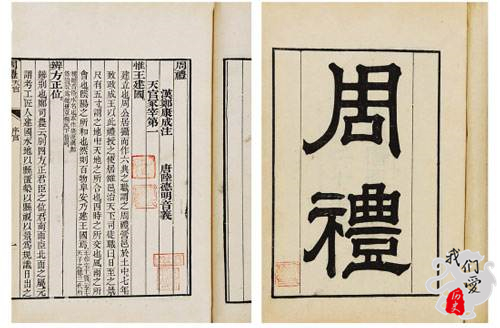 周禮
漢鄭康成注 唐陸德明音義
天官冢宰第一
惟王建國
建立也周公居攝而作六典之職謂之周禮營邑於土中七年
致政成王以此禮授之使居雒邑治天下司徒職曰日至之景
尺有五寸謂之地中天地之所合也四時之所交也風雨之所
會也陰陽之所和也然則百物阜安乃建王國焉
辨方正位
辨別也鄭司農云別四方正君臣之位君南面臣北面之屬玄
謂考工匠人建國水地以縣置槷以縣視以景爲規識日出之
周禮
天官
序官
周禮
我们爱
历史